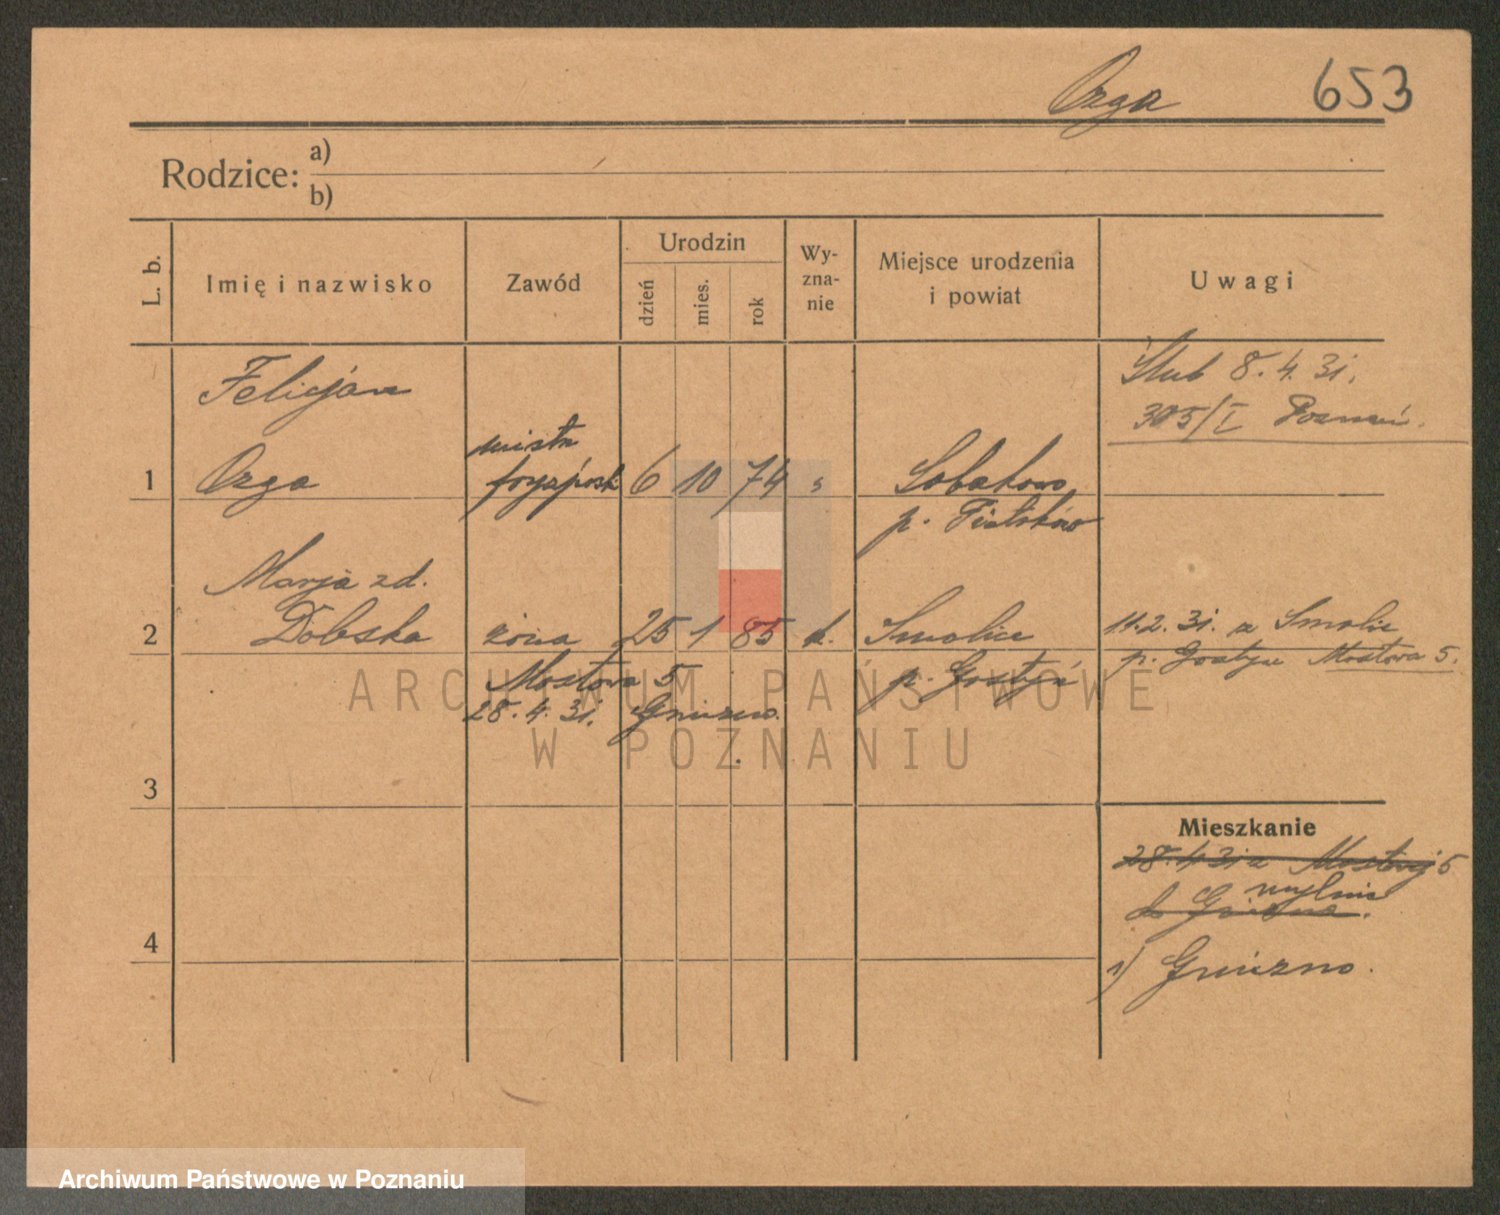 Ozga 653
Rodzice: a)
b)
L. b. Imię i nazwisko Zawód Urodzin dzień mies. rok Wy-zna-nie Miejsce urodzenia i powiat Uwagi
Felicjan
Ślub 8. 4. 31.
305/I Poznań.
mistrz
1 Ozga fryzjersk 6 10 74
Marja zd.
2 Dobska żona 25 1 85 k. Smolice
11. 2. 31. z Smolic
p. Gostyń
p. Gostyn Mostowa 5.
Mostowa 5
28. 4. 31. Gniezno.
3
Mieszkanie
28. 4 31 z Mostowej 5
mylnie
do Gniezna.
4
1) Gniezno.
ARCHIWUM PAŃSTWOWE
W POZNANIU
Archiwum Państwowe w Poznaniu